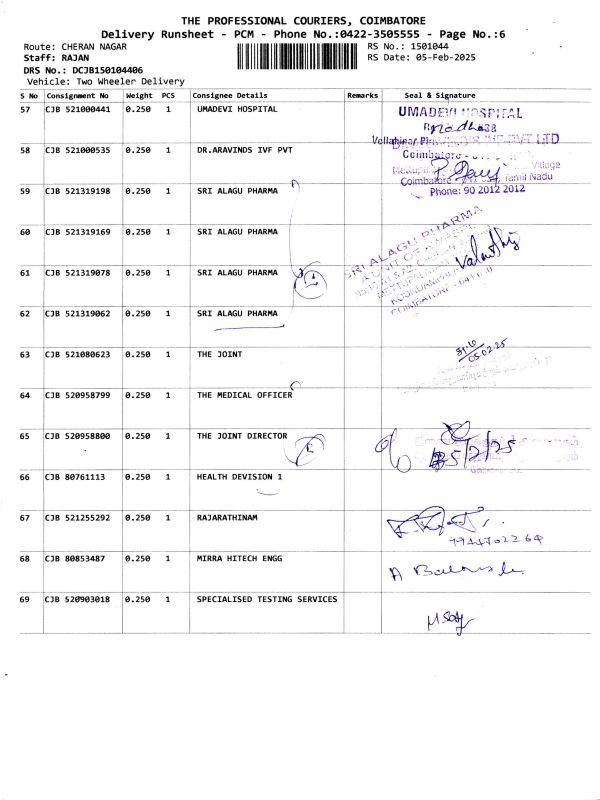 THE PROFESSIONAL COURIERS, COIMBATORE
Delivery Runsheet - PCM - Phone No.:0422-3505555 - Page No.:6
Route: CHERAN NAGAR RS No.: 1501044
Staff: RAJAN RS Date: 05-Feb-2025
DRS No.: DCJB150104406
Vehicle: Two Wheeler Delivery
S No Consignment No Weight PCS Consignee Details Remarks Seal & Signature
57 CJB 521000441 0.250 1 UMADEVI HOSPITAL
UMADEVI HOSPITAL
58 CJB 521000535 0.250 1 DR.ARAVINDS IVF PVT
Coimbatore
Village
Coimbatore Tamil Nadu
Phone: 90 2012 2012
59 CJB 521319198 0.250 1 SRI ALAGU PHARMA
60 CJB 521319169 0.250 1 SRI ALAGU PHARMA
SRI ALAGU PHARMA
61 CJB 521319078 0.250 1 SRI ALAGU PHARMA
62 CJB 521319062 0.250 1 SRI ALAGU PHARMA
63 CJB 521080623 0.250 1 THE JOINT
05.02.25
64 CJB 520958799 0.250 1 THE MEDICAL OFFICER
65 CJB 520958800 0.250 1 THE JOINT DIRECTOR
5/2/25
66 CJB 80761113 0.250 1 HEALTH DEVISION 1
67 CJB 521255292 0.250 1 RAJARATHINAM
68 CJB 80853487 0.250 1 MIRRA HITECH ENGG
69 CJB 520903018 0.250 1 SPECIALISED TESTING SERVICES